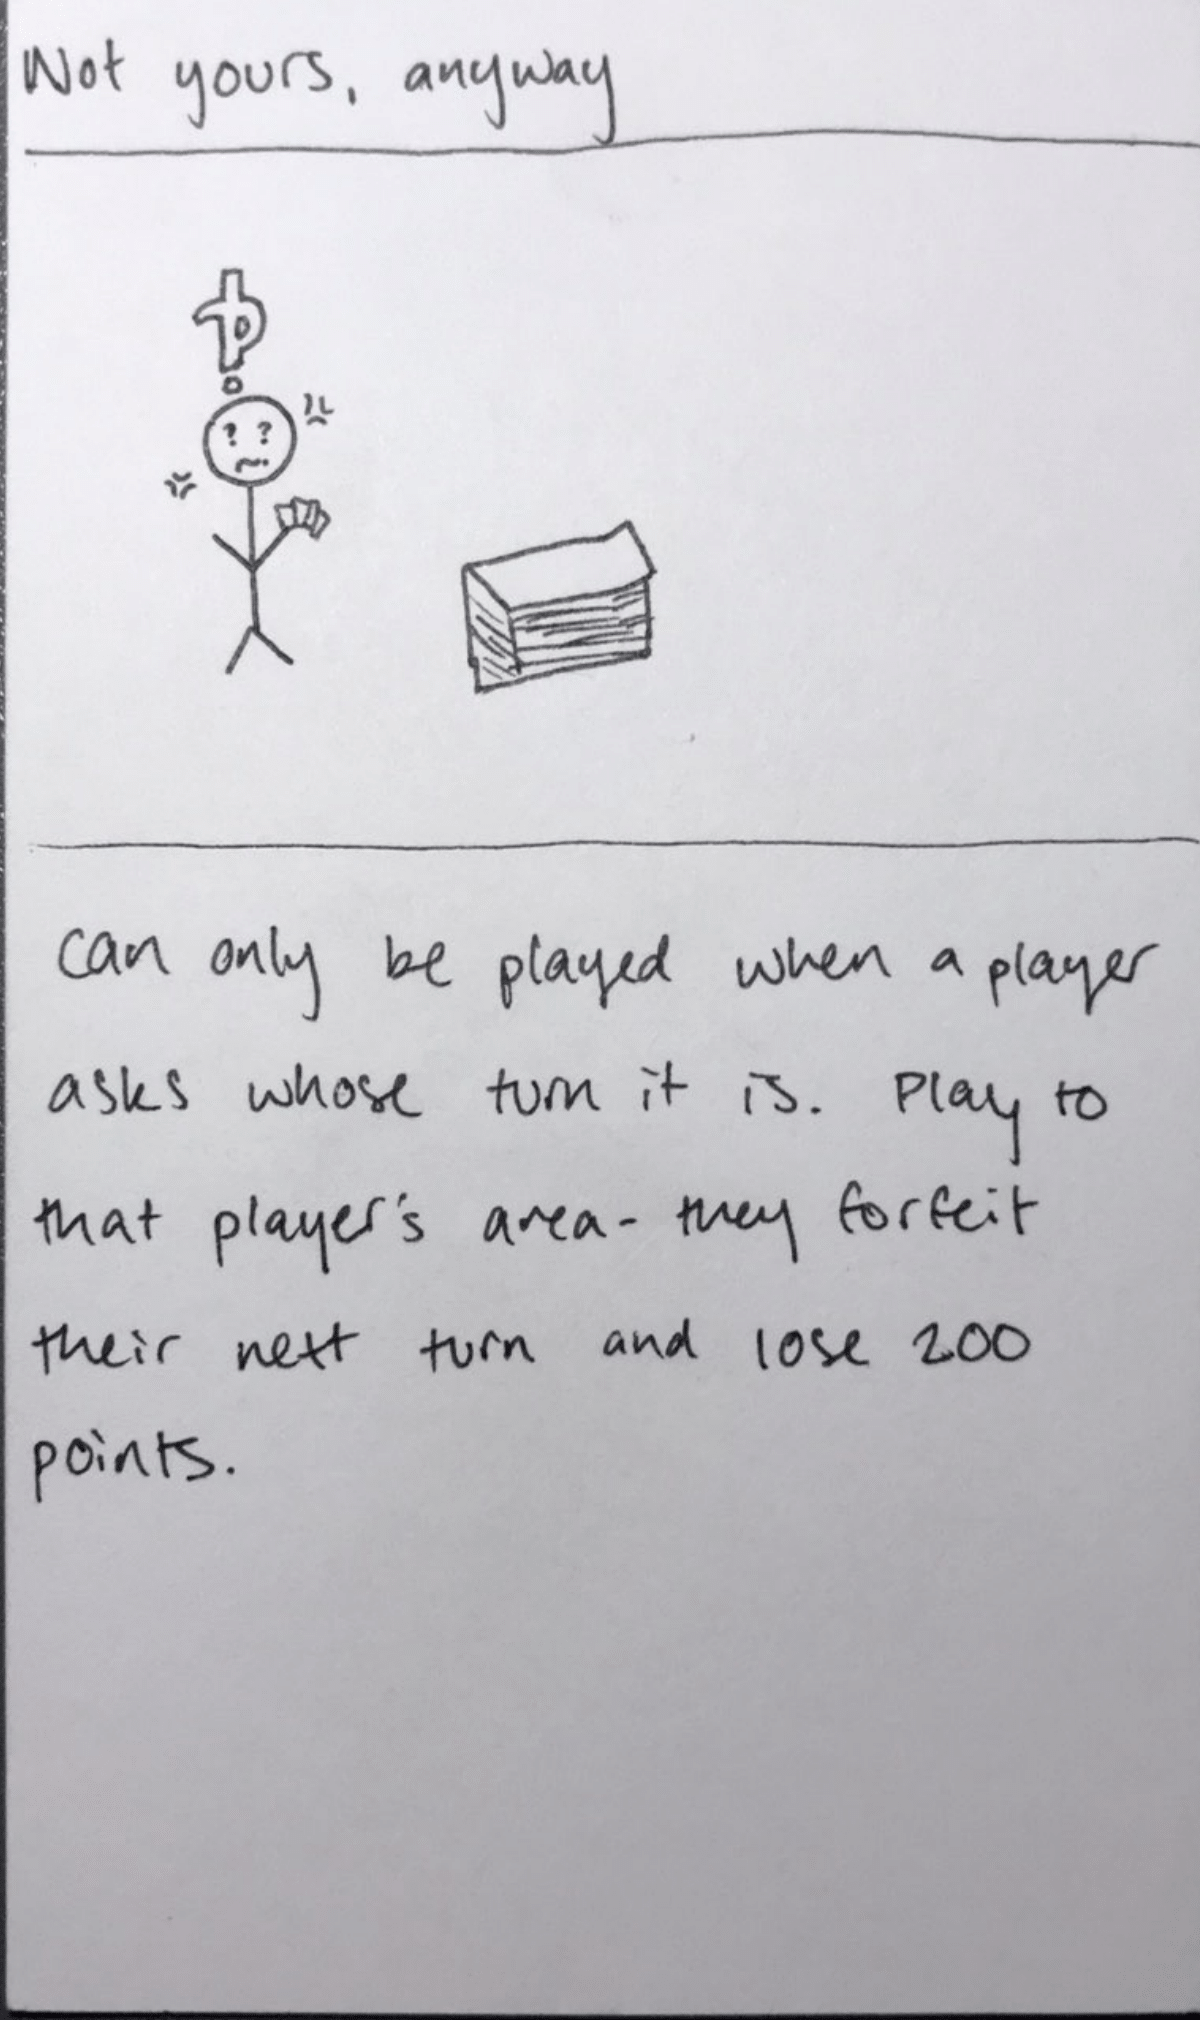 Not yours, anyway
? ?
can only be played when a player
asks whose turn it is. Play to
that player's area - they forfeit
their next turn and lose 200
points.